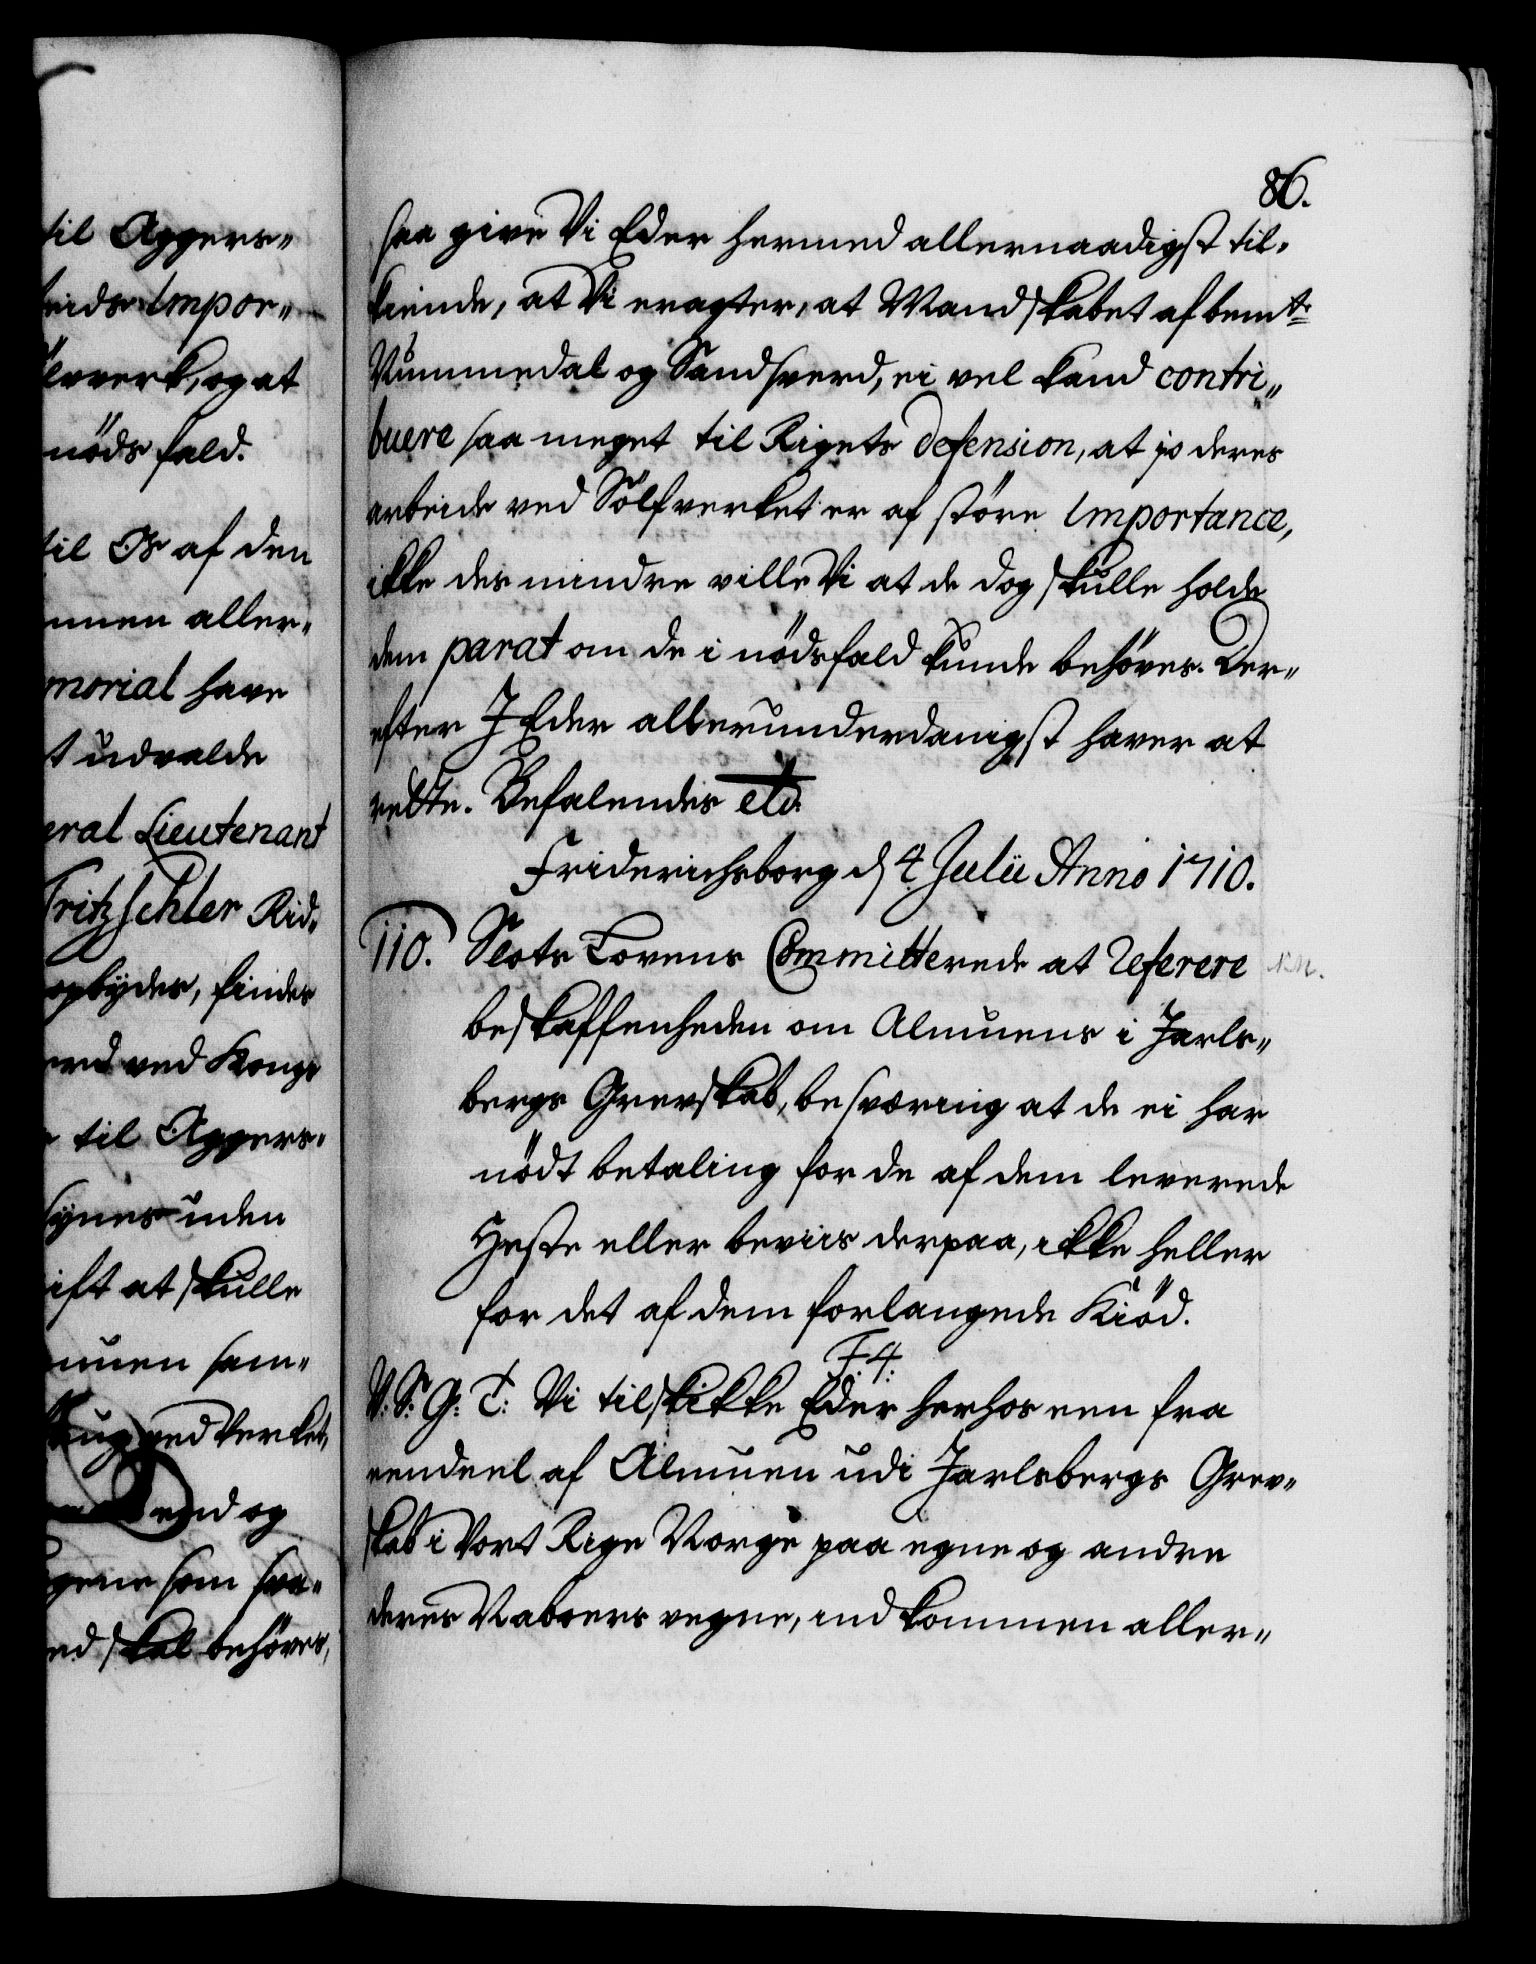 til Aggers„
beids Impor„
ölvverk, og at
nöds fald.
til Os af den
muen aller„
morial have
t udvalde
eral Lieutenant
Fritzschler Rid„
opbydes, findes
verd ved Kongs
til Aggers„
synes uden
ift at skulle
muen sam„
ved Verket,
end og
gene som saa„
ed skal behöves,
86.
saa give Vi Eder hermed allernaadigst til„
kiende, at Vi eragter, at Mandskabet af bemte
Nummedal og Sandsverd, ei vel kand contri„
buere saa meget til Rigets defension, at jo deres
arbeide ved Sölfverket er af störe Importance,
ikke des mindre ville Vi at de dog skulle holde
dem parat om de i nödsfald kunde behöves. Der„
efter I Eder allerunderdanigst haver at
rette. Befalendes etc.
Friderichsborg d 4 Julii Anno 1710.
110. Slots Lovens Committerede at referere
beskaffenheden om Almuens i Jarls„
bergs Grevskab, besværing at de ei har
nödt betaling for de af dem leverede
Heste eller beviis derpaa, ikke heller
for det af dem forlangede Kiöd.
F. 4.
V. S. G. T. Vi tilskikke Eder herhos een fra
eendeel af Almuen udi Jarlsbergs Grev„
skab i Vort Rige Norge paa egne og andre
deres Naboers vegne, indkommen aller„